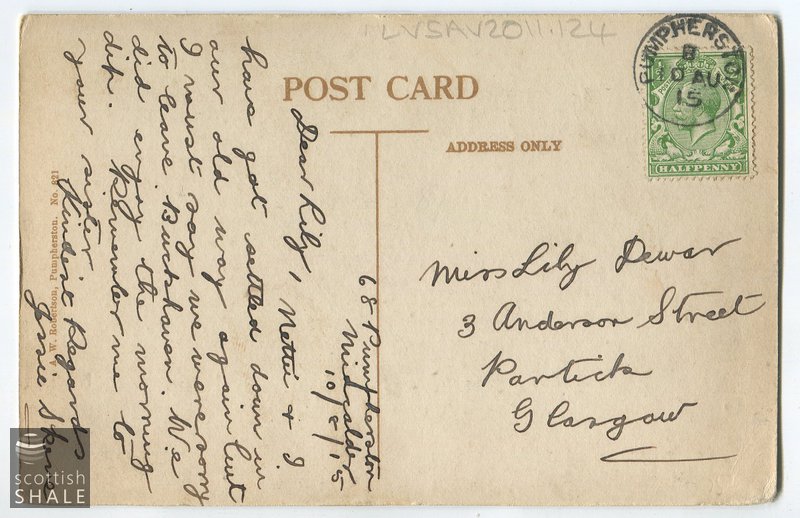 LVSAV2011.124
POST CARD
ADDRESS ONLY
PUMPHERSTON
B
10 AU
15
HALFPENNY
Miss Lily Dewar
3 Anderson Street
Partick
Glasgow
68 Pumpherston
Midcalder
10/8/15
Dear Lily, Nettie & I
have got settled down in
our old way again but
I must say we were sorry
to leave Buckhaven. We
did enjoy the morning
dip. Remember me to
your sister
Kindest Regards
Jessie Skene
A. W. Robertson, Pumpherston. No. 821
scottish
SHALE